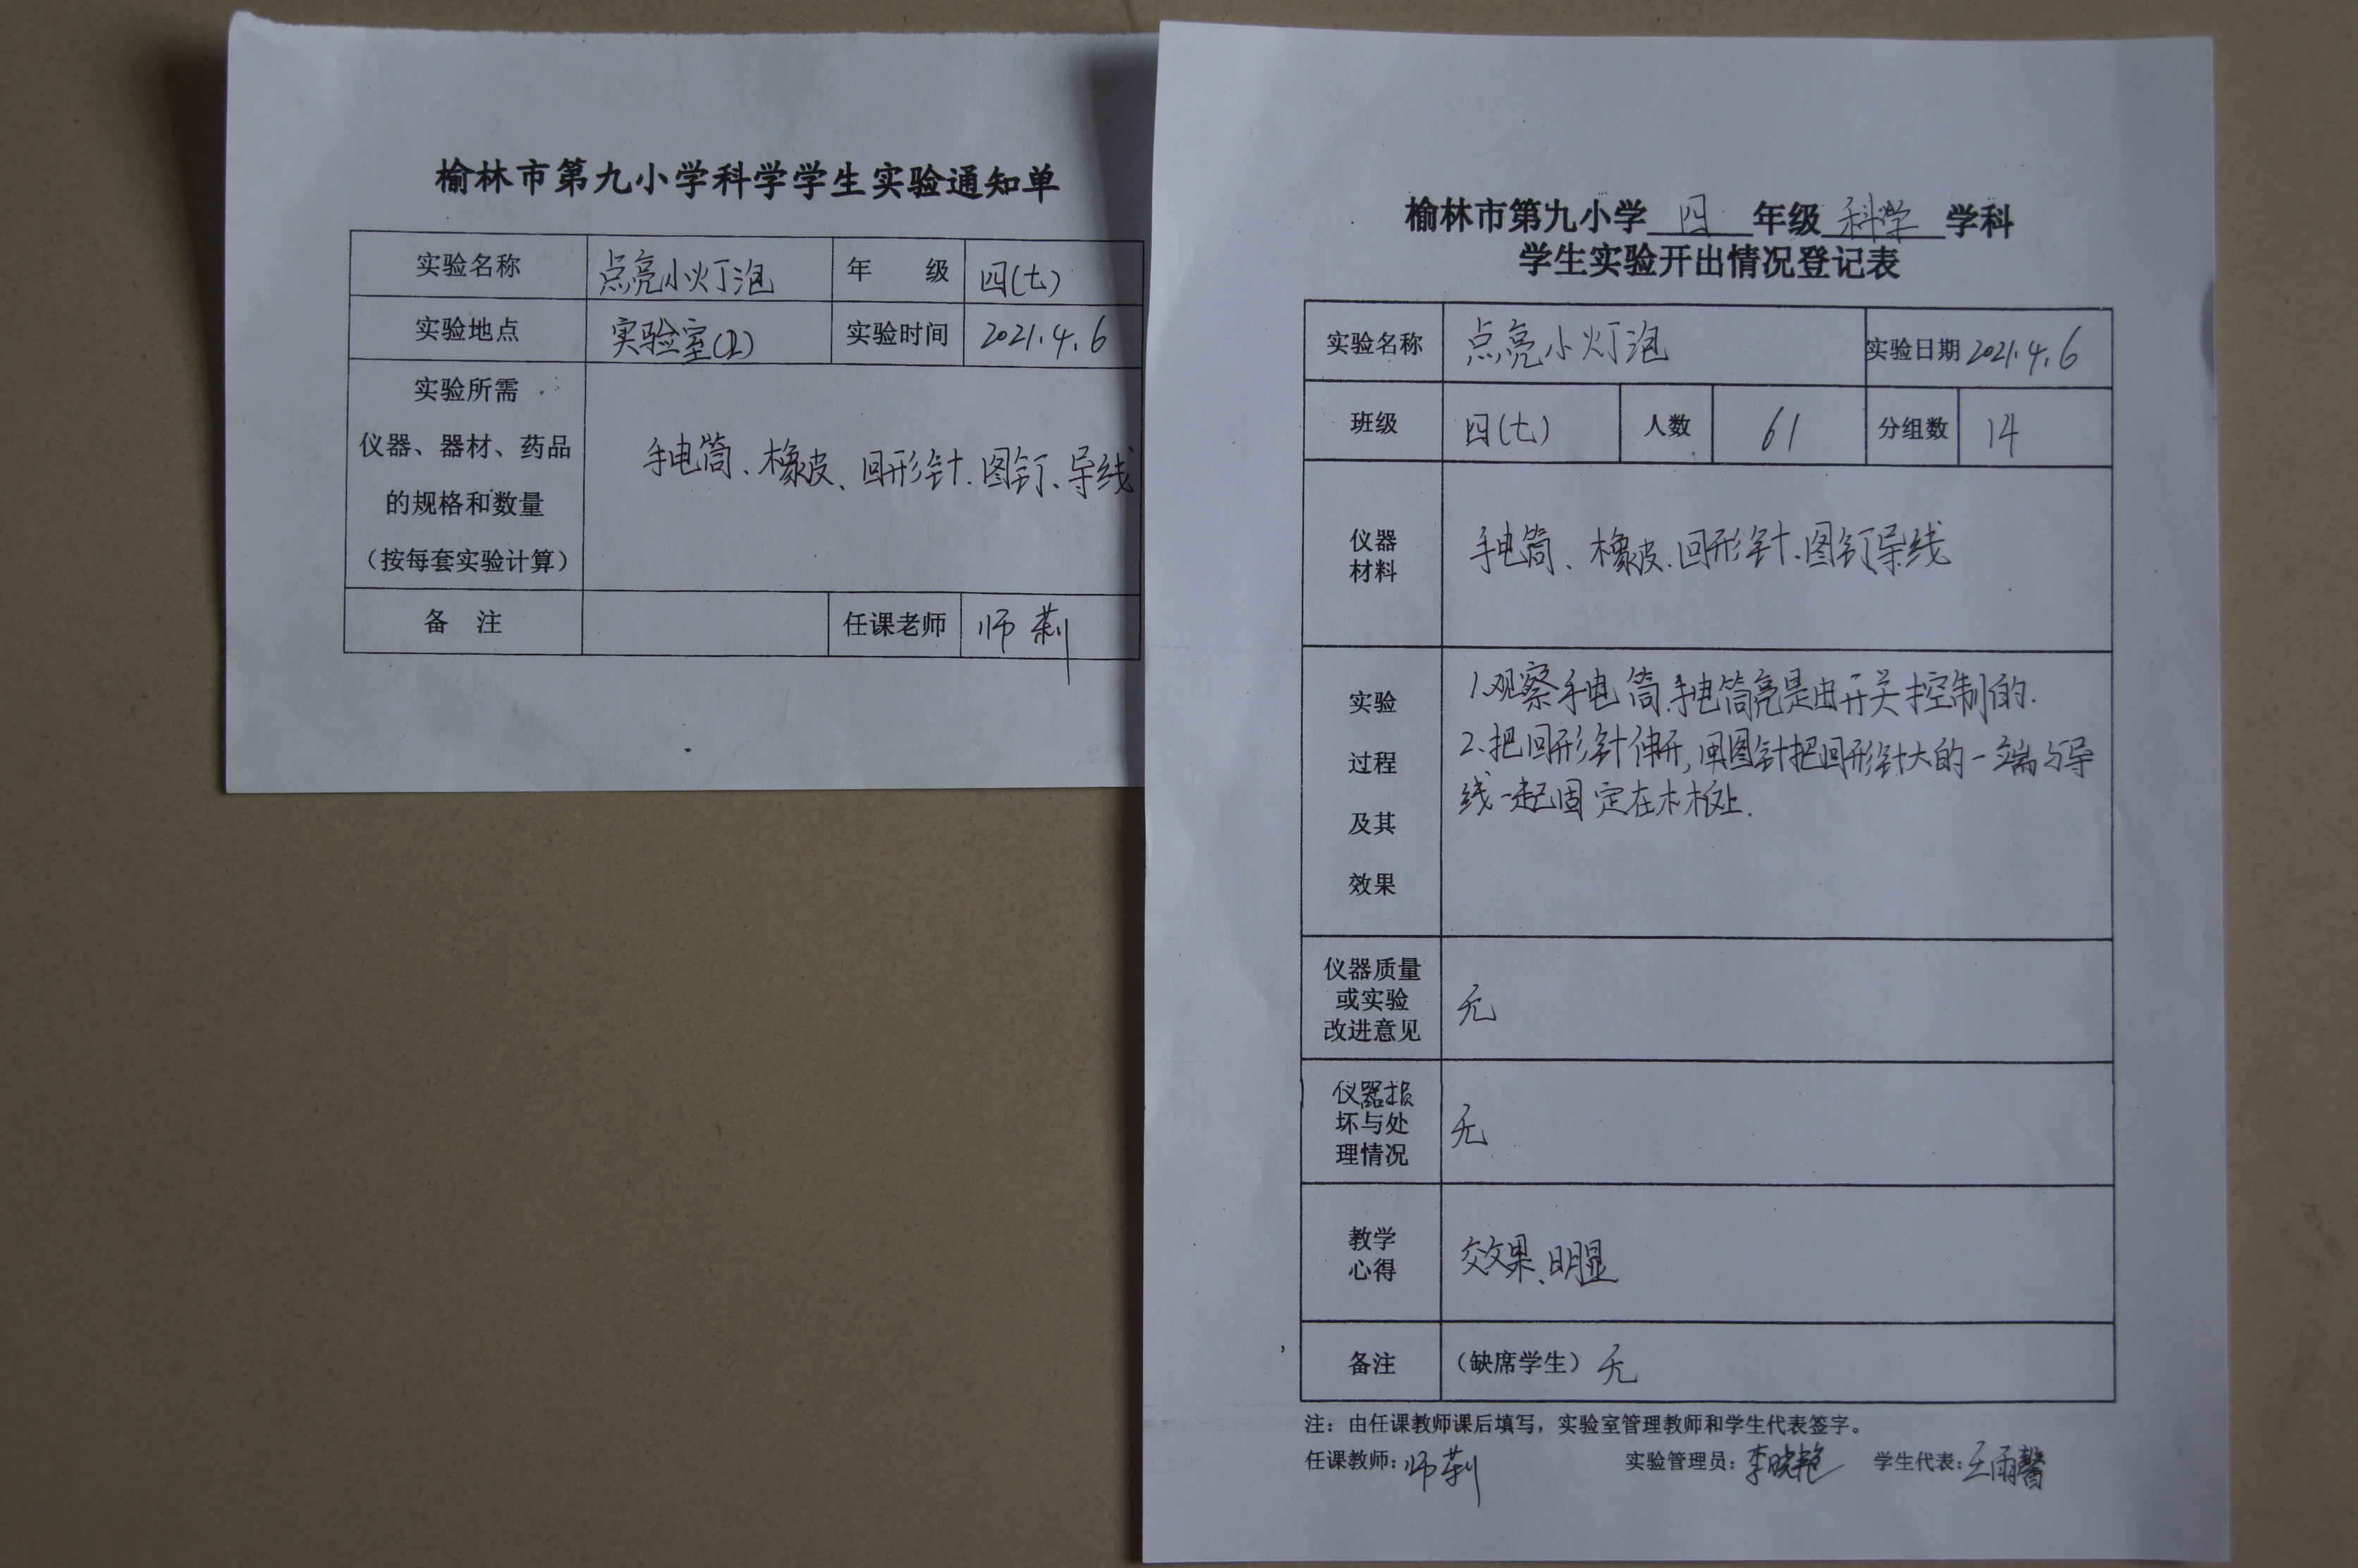 榆林市第九小学科学学生实验通知单
实验名称 点亮小灯泡 年 级 四(七)
实验地点 实验室 实验时间 2021.4.6
实验所需
仪器、器材、药品
的规格和数量
（按每套实验计算）
手电筒、橡皮、回形针、图钉、导线
备 注 任课老师 师莉
榆林市第九小学 四 年级 科学 学科
学生实验开出情况登记表
实验名称 点亮小灯泡 实验日期 2021.4.6
班级 四(七) 人数 61 分组数 14
仪器
材料
手电筒、橡皮、回形针、图钉导线
实验
过程
及其
效果
1.观察手电筒.手电筒亮是由开关控制的.
2.把回形针伸开,用图针把回形针大的一端与导
线一起固定在木板上.
仪器质量
或实验
改进意见
无
仪器损
坏与处
理情况
无
教学
心得
效果、明显
备注 （缺席学生） 无
注：由任课教师课后填写，实验室管理教师和学生代表签字。
任课教师：师莉 实验管理员：李晓艳 学生代表：王雨馨